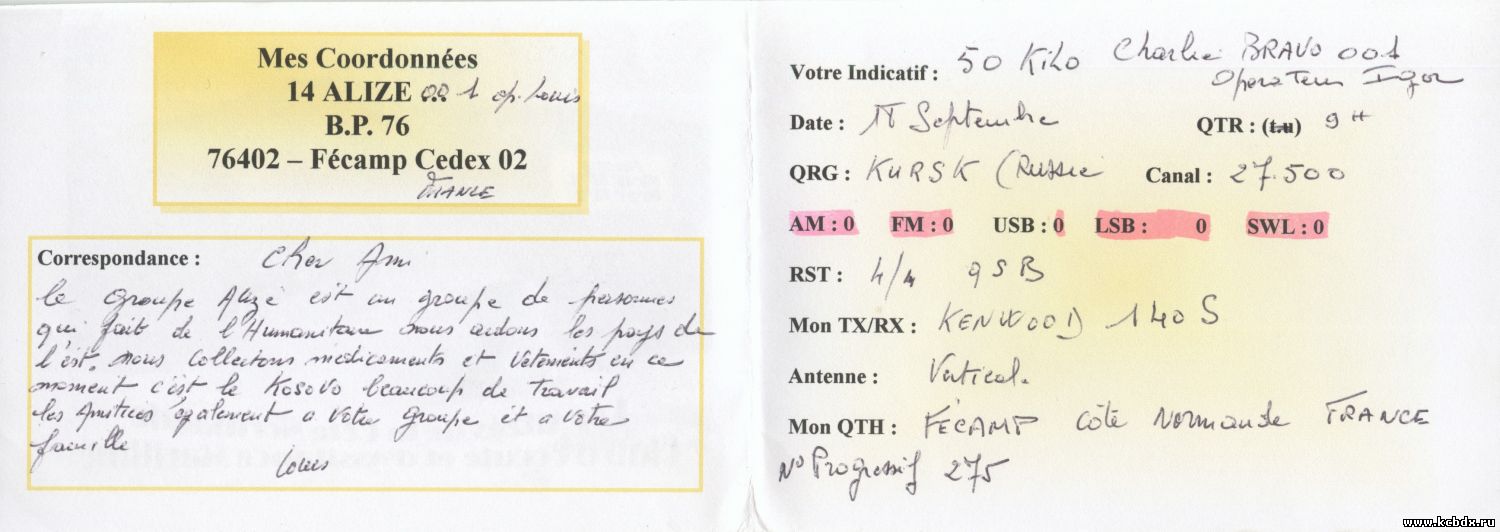 Mes Coordonnées
14 ALIZE ... 001 op. Louis
B.P. 76
76402 – Fécamp Cedex 02
FRANCE
Correspondance : Cher Ami
le Groupe Alizé est un groupe de personnes
qui fait de l'Humanitaire nous aidons les pays de
l'est. nous Collectons médicaments et Vetements en ce
moment c'est le Kosovo beaucoup de Travail
les Amitiés également a votre groupe et a votre
famille
Louis
Votre Indicatif : 50 Kilo Charlie BRAVO 001
Operateur Igor
Date : Septembre QTR : (t.u) 9 H
QRG : KURSK (Russie Canal : 27.500
AM : 0 FM : 0 USB : 0 LSB : 0 SWL : 0
RST : 4/4 QSB
Mon TX/RX : KENWOOD 140 S
Antenne : Vertical.
Mon QTH : FÉCAMP Côte Normande FRANCE
N° Progressif 275
www.kcbdx.ru